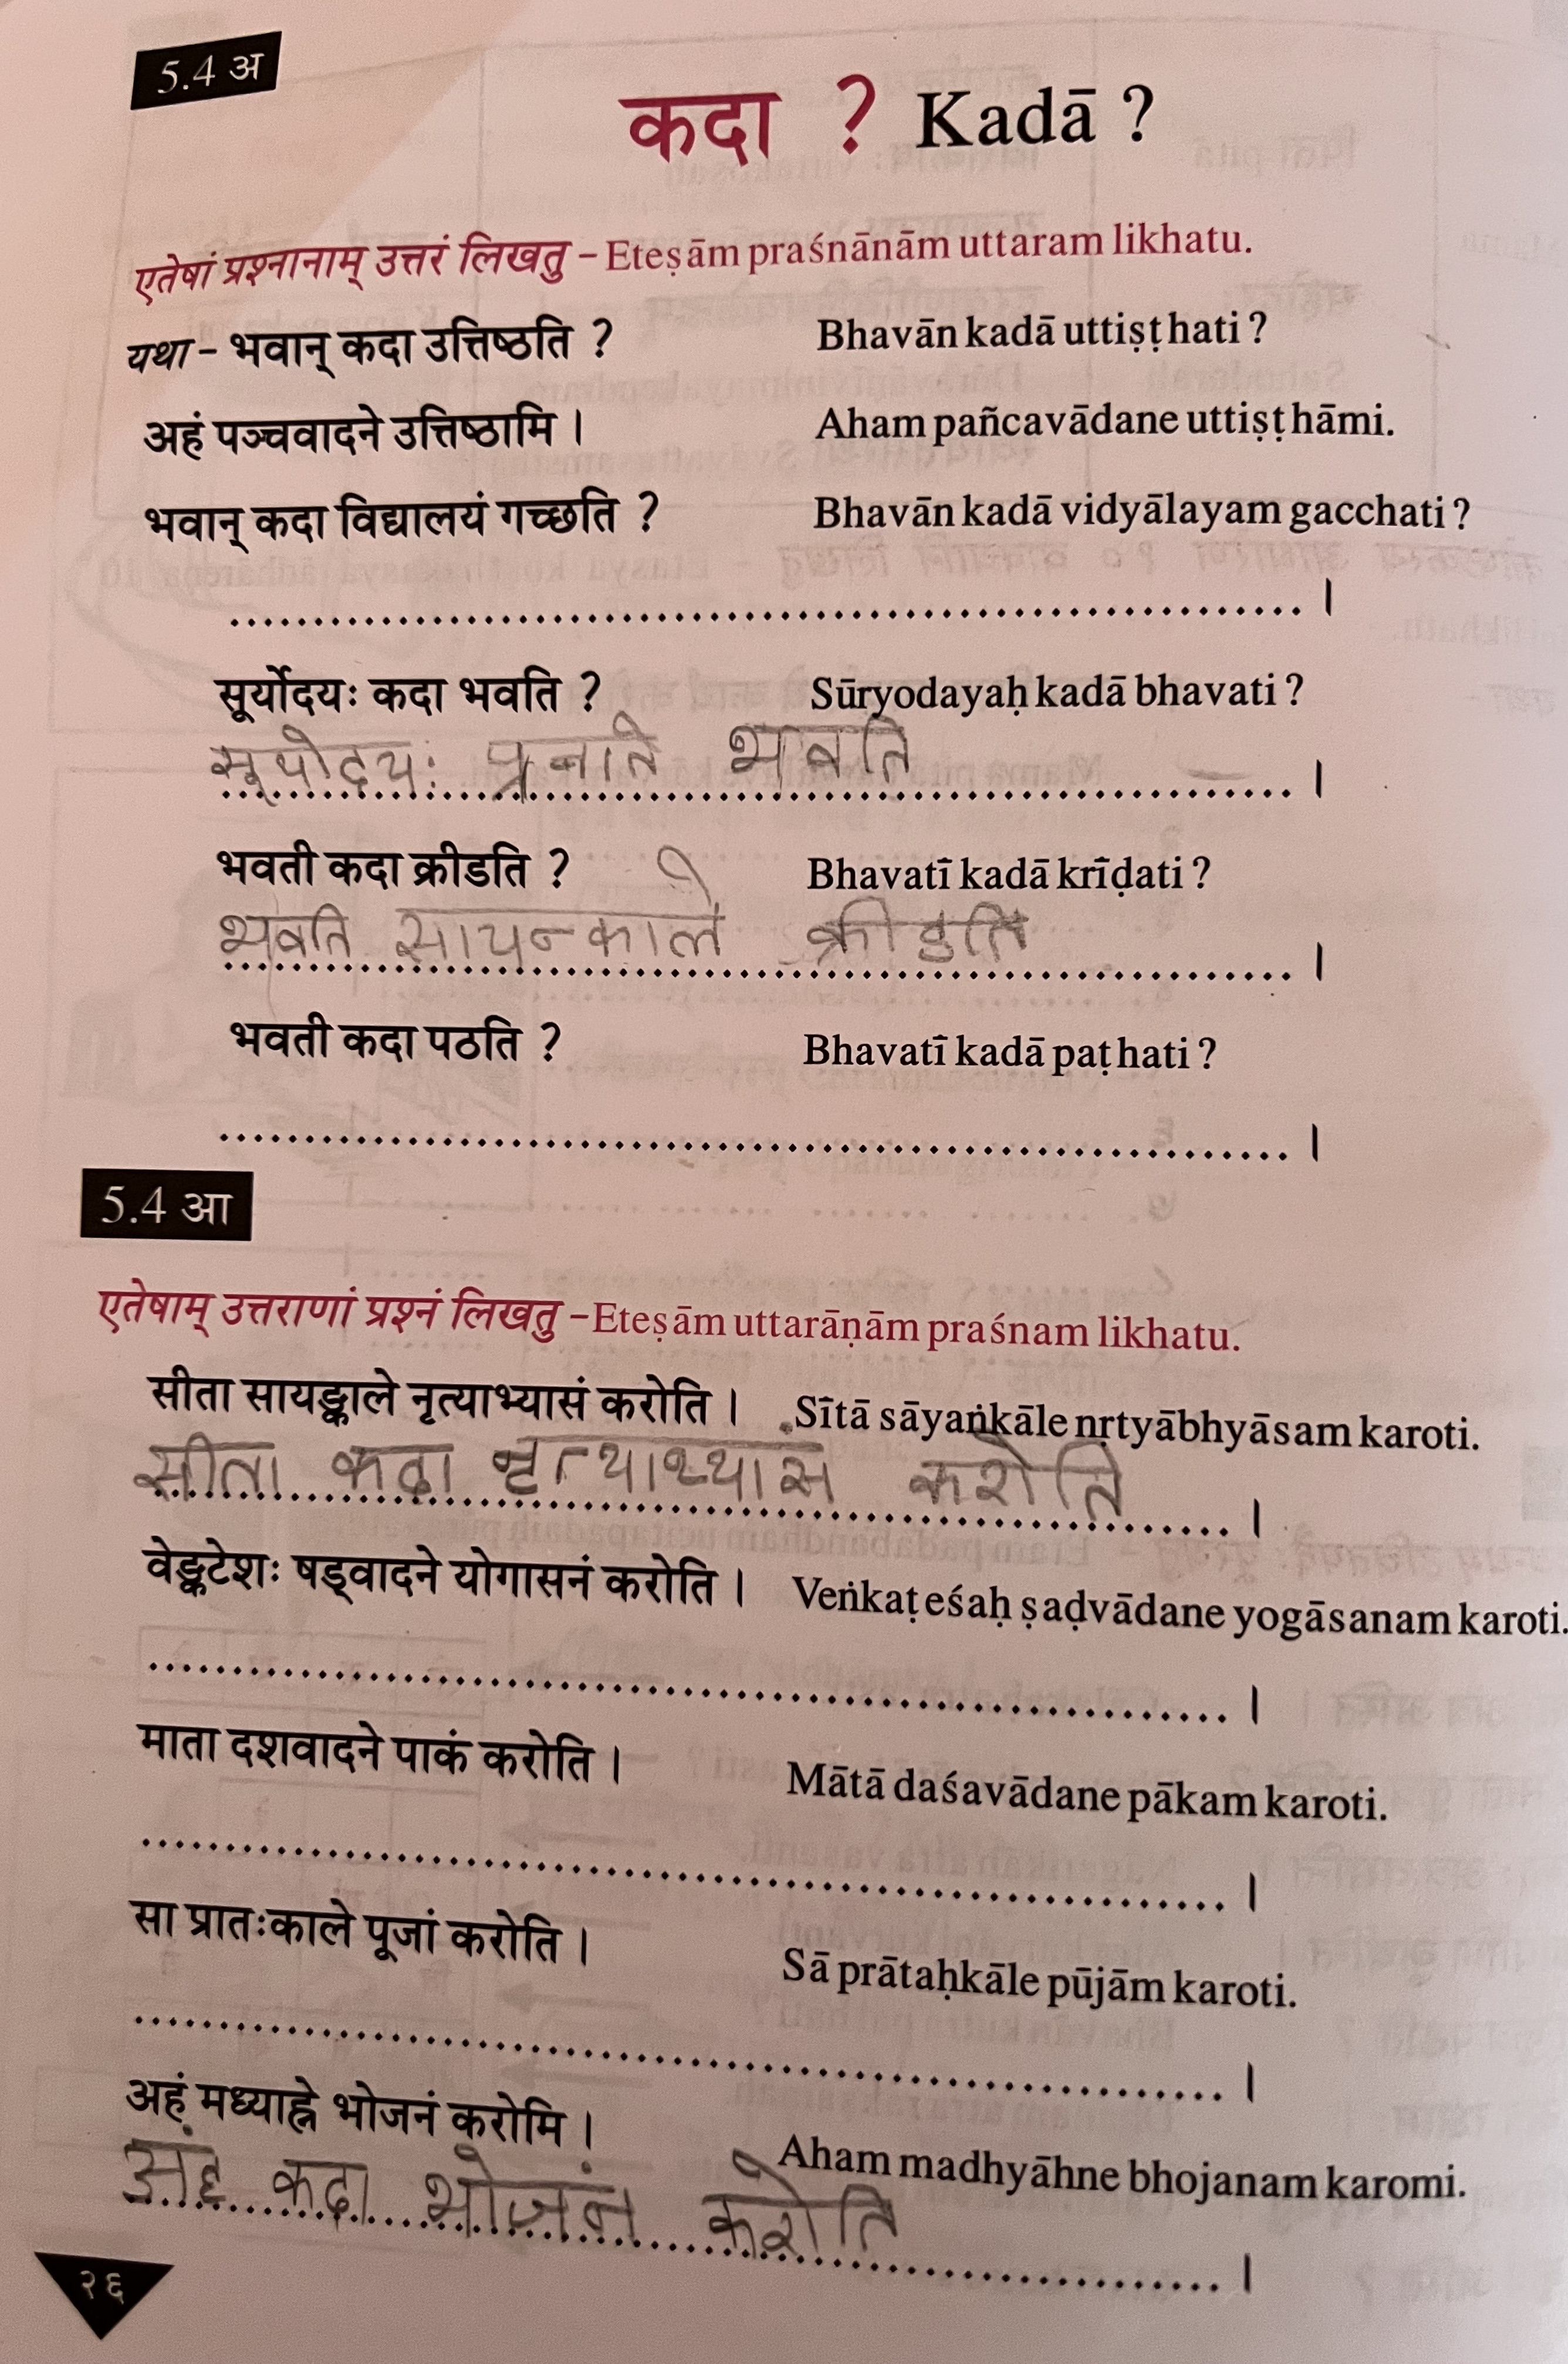 5.4 अ
कदा ? Kadā ?
एतेषां प्रश्नानाम् उत्तरं लिखतु – Eteṣām praśnānām uttaram likhatu.
यथा – भवान् कदा उत्तिष्ठति ? Bhavān kadā uttiṣṭhati ?
अहं पञ्चवादने उत्तिष्ठामि । Aham pañcavādane uttiṣṭhāmi.
भवान् कदा विद्यालयं गच्छति ? Bhavān kadā vidyālayam gacchati ?
.................................................. ।
सूर्योदयः कदा भवति ? Sūryodayaḥ kadā bhavati ?
सूयोदयः भवति ।
भवती कदा क्रीडति ? Bhavatī kadā krīḍati ?
भवति सायन्काले क्रीडति ।
भवती कदा पठति ? Bhavatī kadā paṭhati ?
.................................................. ।
5.4 आ
एतेषाम् उत्तराणां प्रश्नं लिखतु – Eteṣām uttarāṇām praśnam likhatu.
सीता सायङ्काले नृत्याभ्यासं करोति । Sītā sāyaṅkāle nṛtyābhyāsam karoti.
सीता कदा करोति ।
वेङ्कटेशः षड्वादने योगासनं करोति । Veṅkaṭeśaḥ ṣaḍvādane yogāsanam karoti.
.................................................. ।
माता दशवादने पाकं करोति । Mātā daśavādane pākam karoti.
.................................................. ।
सा प्रातःकाले पूजां करोति । Sā prātaḥkāle pūjām karoti.
.................................................. ।
अहं मध्याह्ने भोजनं करोमि । Aham madhyāhne bhojanam karomi.
अंह कदा भोजनं करोति ।
२६